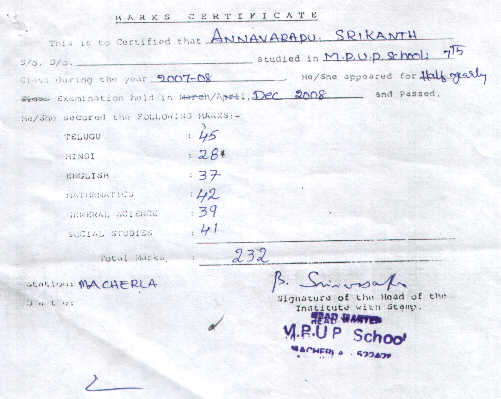 MARKS CERTIFICATE
This is to Certified that ANNAVARAPU. SRIKANTH
S/o. D/o. studied in M.P.U.P. School; 7th
Class during the year 2007-08. He/She appeared for Half yearly
Examination held in March/April, Dec 2008 and Passed.
He/She secured the FOLLOWING MARKS:-
TELUGU : 45
HINDI : 28*
ENGLISH : 37
MATHEMATICS : 42
GENERAL SCIENCE : 39
SOCIAL STUDIES : 41
Total Marks : 232
Station: MACHERLA
Signature of the Head of the
Institute with Stamp.
HEAD MASTER
M.P.U.P School
MACHERLA - 522426